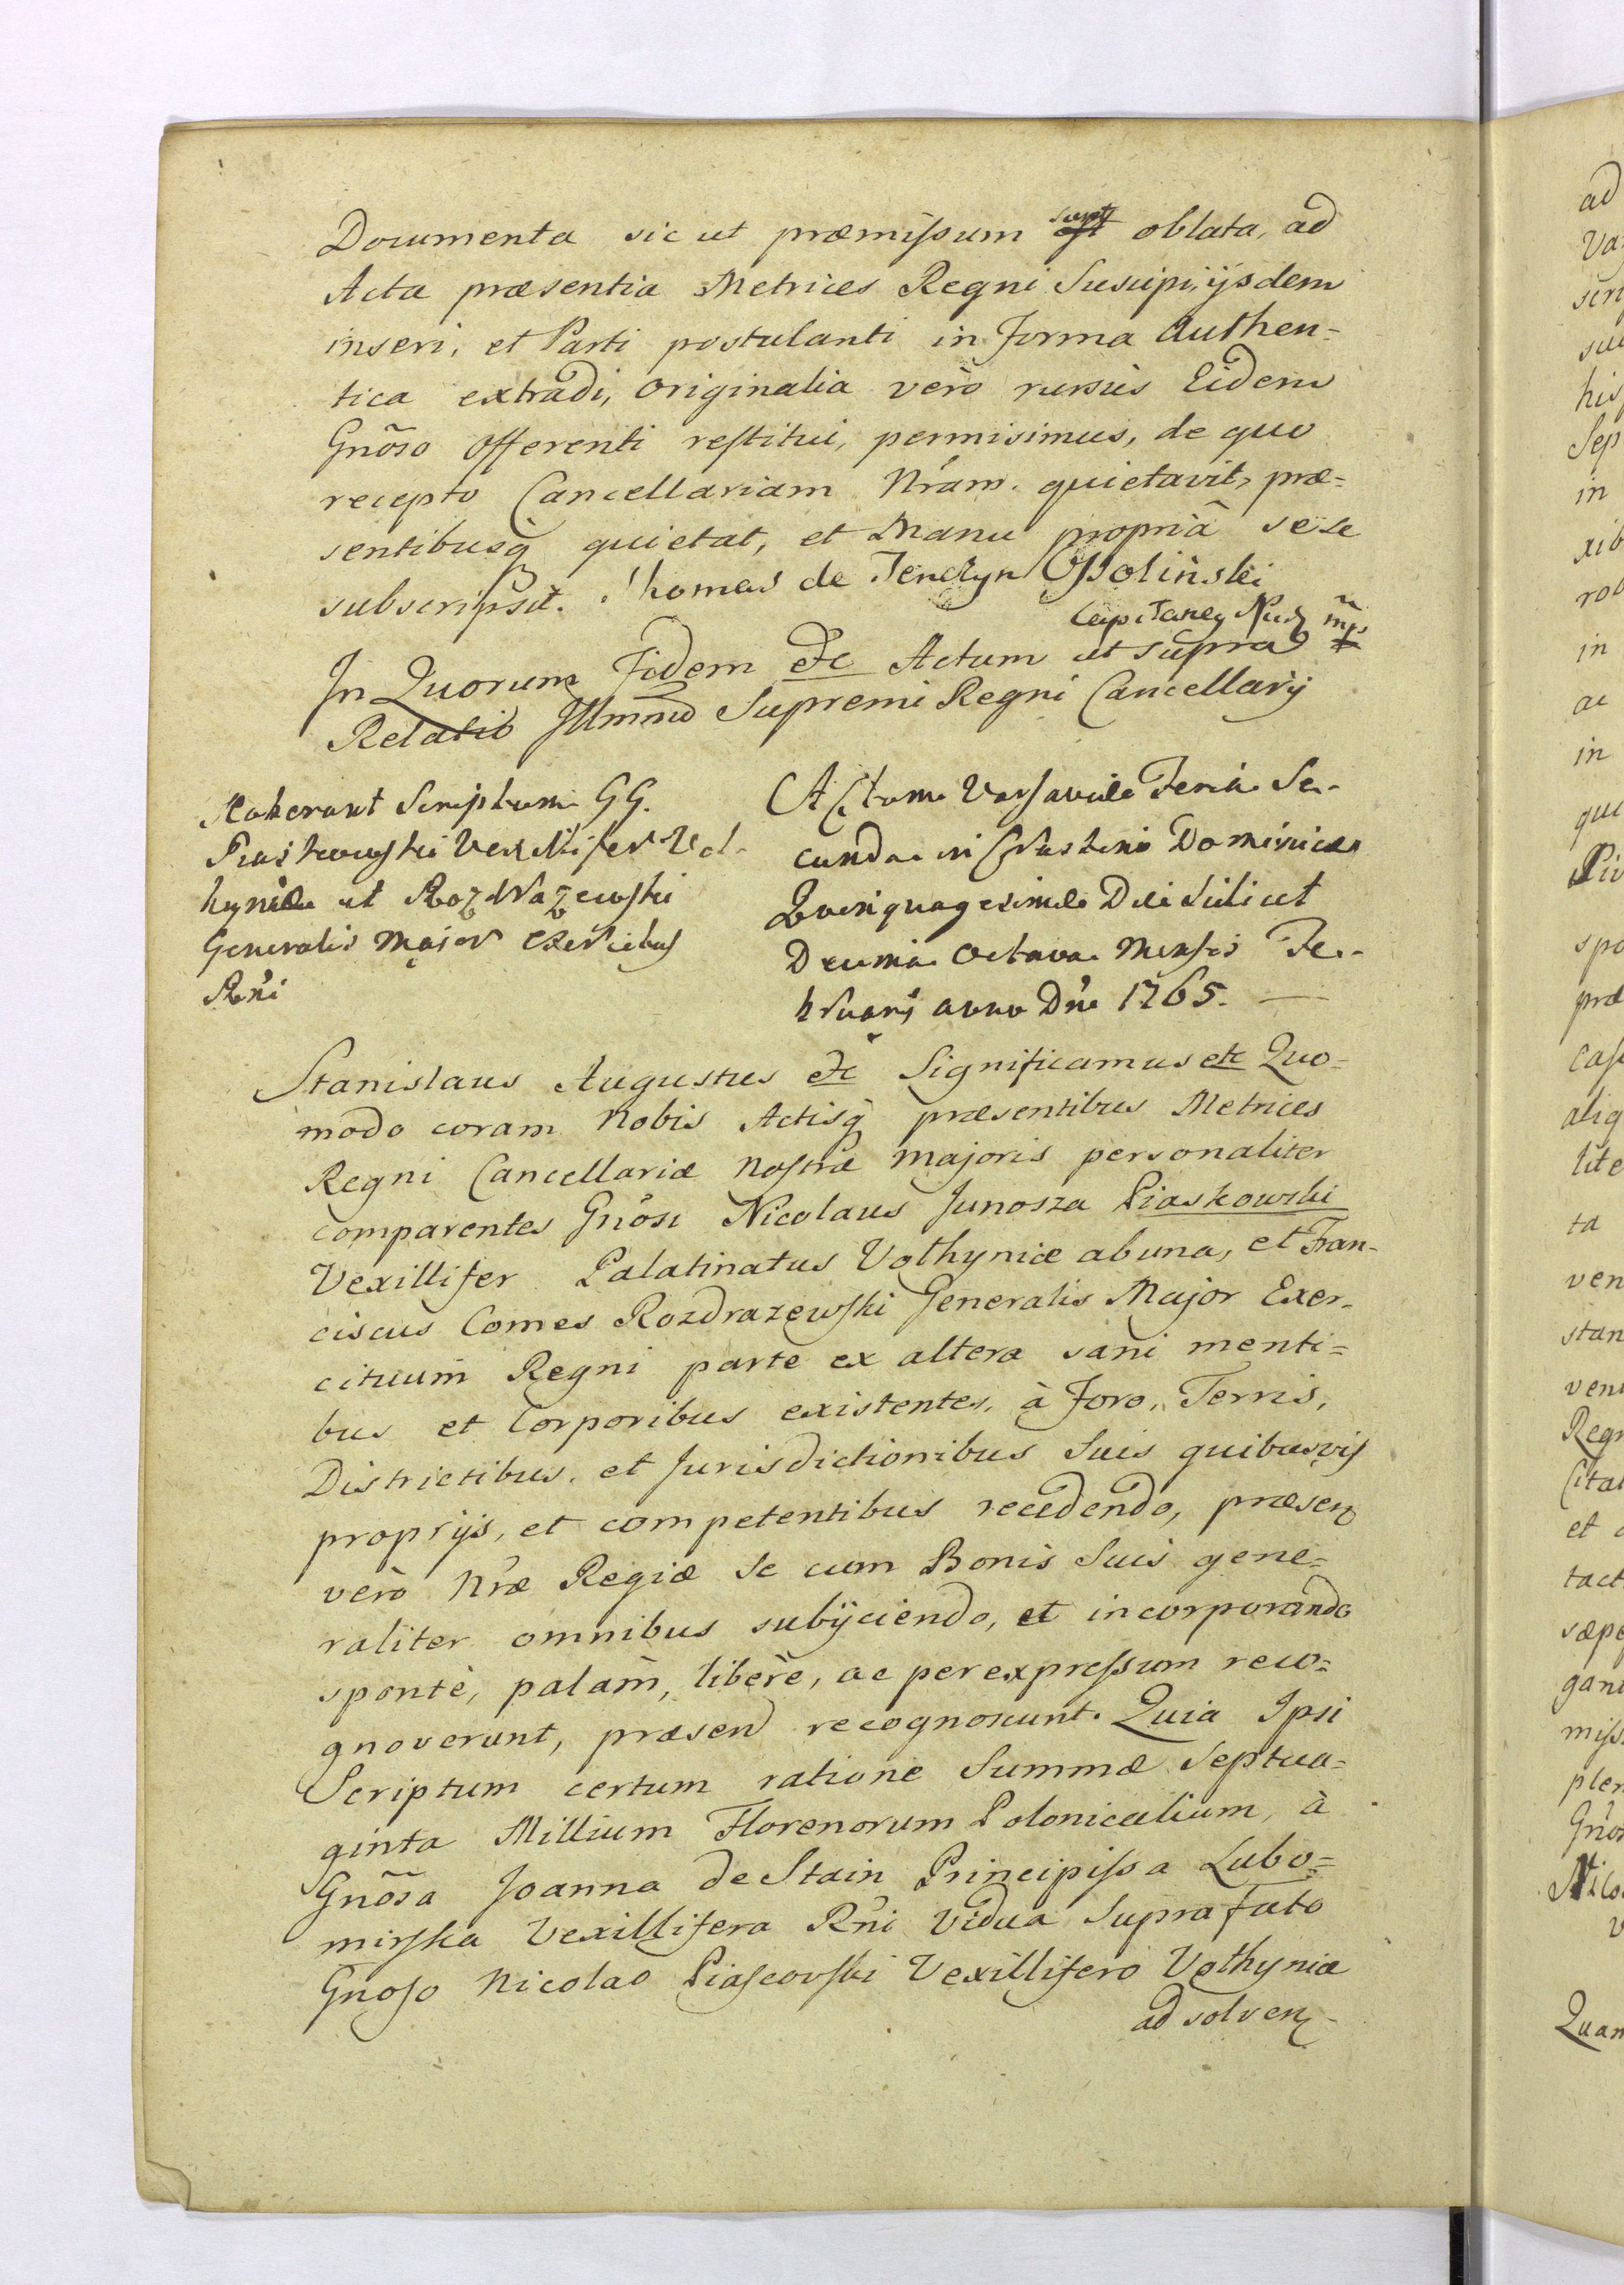 Documenta sic ut præmissum sunt oblata, ad
Acta præsentia Metrices Regni Suscipi, ijsdem
inseri, et Parti postulanti in Forma Authen=
tica extradi, Originalia verò rursùs Eidem
Gnõso Offerenti restitui, permisimus, de quo
recepto Cancellariam Nram. quietavit, præ=
sentibusq quietat, et Manu propriâ sese
subscripsit. Thomas de Tenczyn Ossoliński
Capitaney Nur mp
In Quorum Fidem etc Actum ut supra
Relatio Illmmi Supremi Regni Cancellarij
Roborant Scriptum GG.
Piaskowski Vexillifer Vol-
hyniæ et Rozdrazewski
Generalis Major Exercitus
Rni
Actum Varsaviæ Feria Se-
cunda in Crastino Dominicæ
Quinquagesimæ Die Scilicet
Decima Octava Mensis Fe-
bruarij anno Dni 1765.
Stanislaus Augustus etc Significamus etc Quo-
modo coram Nobis Actisq præsentibus Metrices
Regni Cancellariæ Nostræ Majoris personaliter
comparentes Gnosi Nicolaus Junosza Piaskowski
Vexillifer Palatinatus Volhyniæ ab una, et Fran-
ciscus Comes Rozdrazewski Generalis Major Exer-
cituum Regni parte ex altera sani menti=
bus et Corporibus existentes, à Foro, Terris,
Districtibus, et Jurisdictionibus Suis quibusvis
proprijs, et competentibus recedendo, præsen
verò Nræ Regiæ se cum Bonis Suis gene=
raliter omnibus subijciendo, et incorporando
spontè, palam, liberè, ac per expressum reco=
gnoverunt, præsen recognoscunt. Quia Ipsi
Scriptum certum ratione Summæ Septua=
ginta Millium Florenorum Polonicalium, à
Gnõsa Joanna de Stain Principissa Lubo=
mirska Vexillifera Rni Vidua Suprafato
Gnoso Nicolao Piascovski Vexillifero Volhyniæ
ad solven-